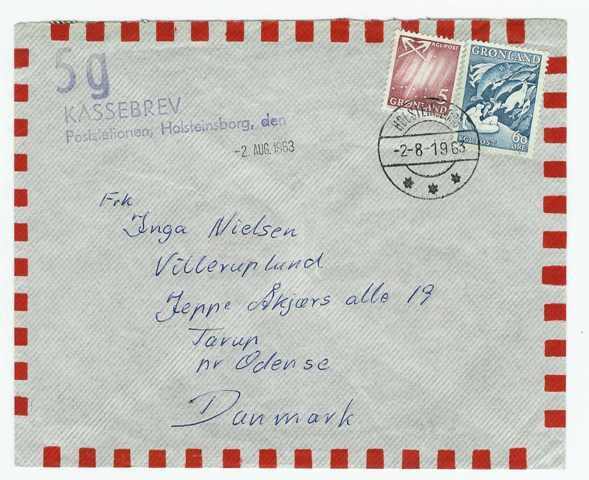 5 g
KASSEBREV
Poststationen, Holsteinsborg, den
-2. AUG. 1963
KGL. POST
5
GRØNLAND
GRØNLAND
60
ØRE
KGL. POST
HOLSTEINSBORG
-2-8-1963
Frk
Inga Nielsen
Villeruplund
Jeppe Åkjærs alle 19
Tarup
nr Odense
Danmark